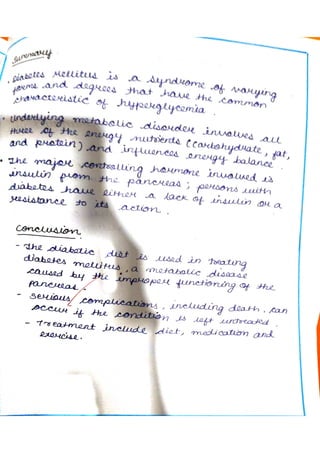 Summary
Diabetes Mellitus is a syndrome of varying
forms and degrees that have the common
characteristic of hyperglycemia.
• Underlying metabolic disorder involves all
three of the energy nutrients (carbohydrate, fat,
and protein) and influences energy balance.
• The major controlling hormone involved is
insulin from the pancreas; persons with
diabetes have either a lack of insulin or a
resistance to its action.
Conclusion
- The diabetic diet is used in treating
diabetes mellitus, a metabolic disease
caused by the improper functioning of the
pancreas.
- Serious complications, including death, can
occur if the condition is left untreated.
- Treatment include diet, medication and
exercise.